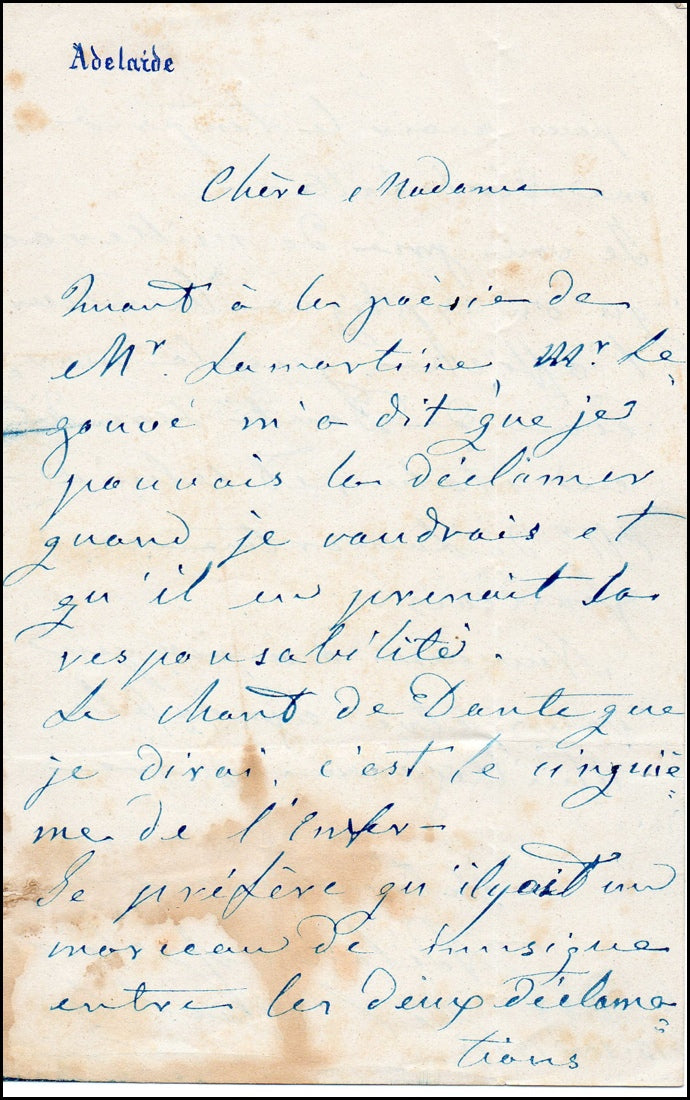 Adelaide
Chère Madame
Quant à la poésie de
Mr. Lamartine, Mr. Le-
gouvé m'a dit que je
pouvais la déclamer
quand je voudrais et
qu'il en prenait la
responsabilité.
Le Chant de Dante que
je dirai, c'est le cinquiè=
me de l'Enfer-
Je préfère qu'il y ait un
morceau de musique
entre les deux déclama=
tions